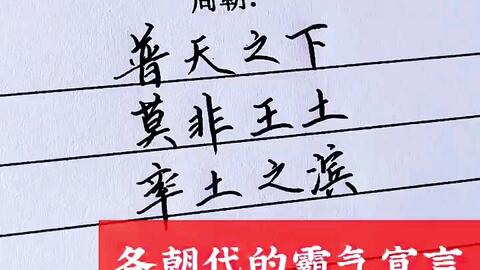 周朝：
普天之下
莫非王土
率土之滨
各朝代的霸气宣言